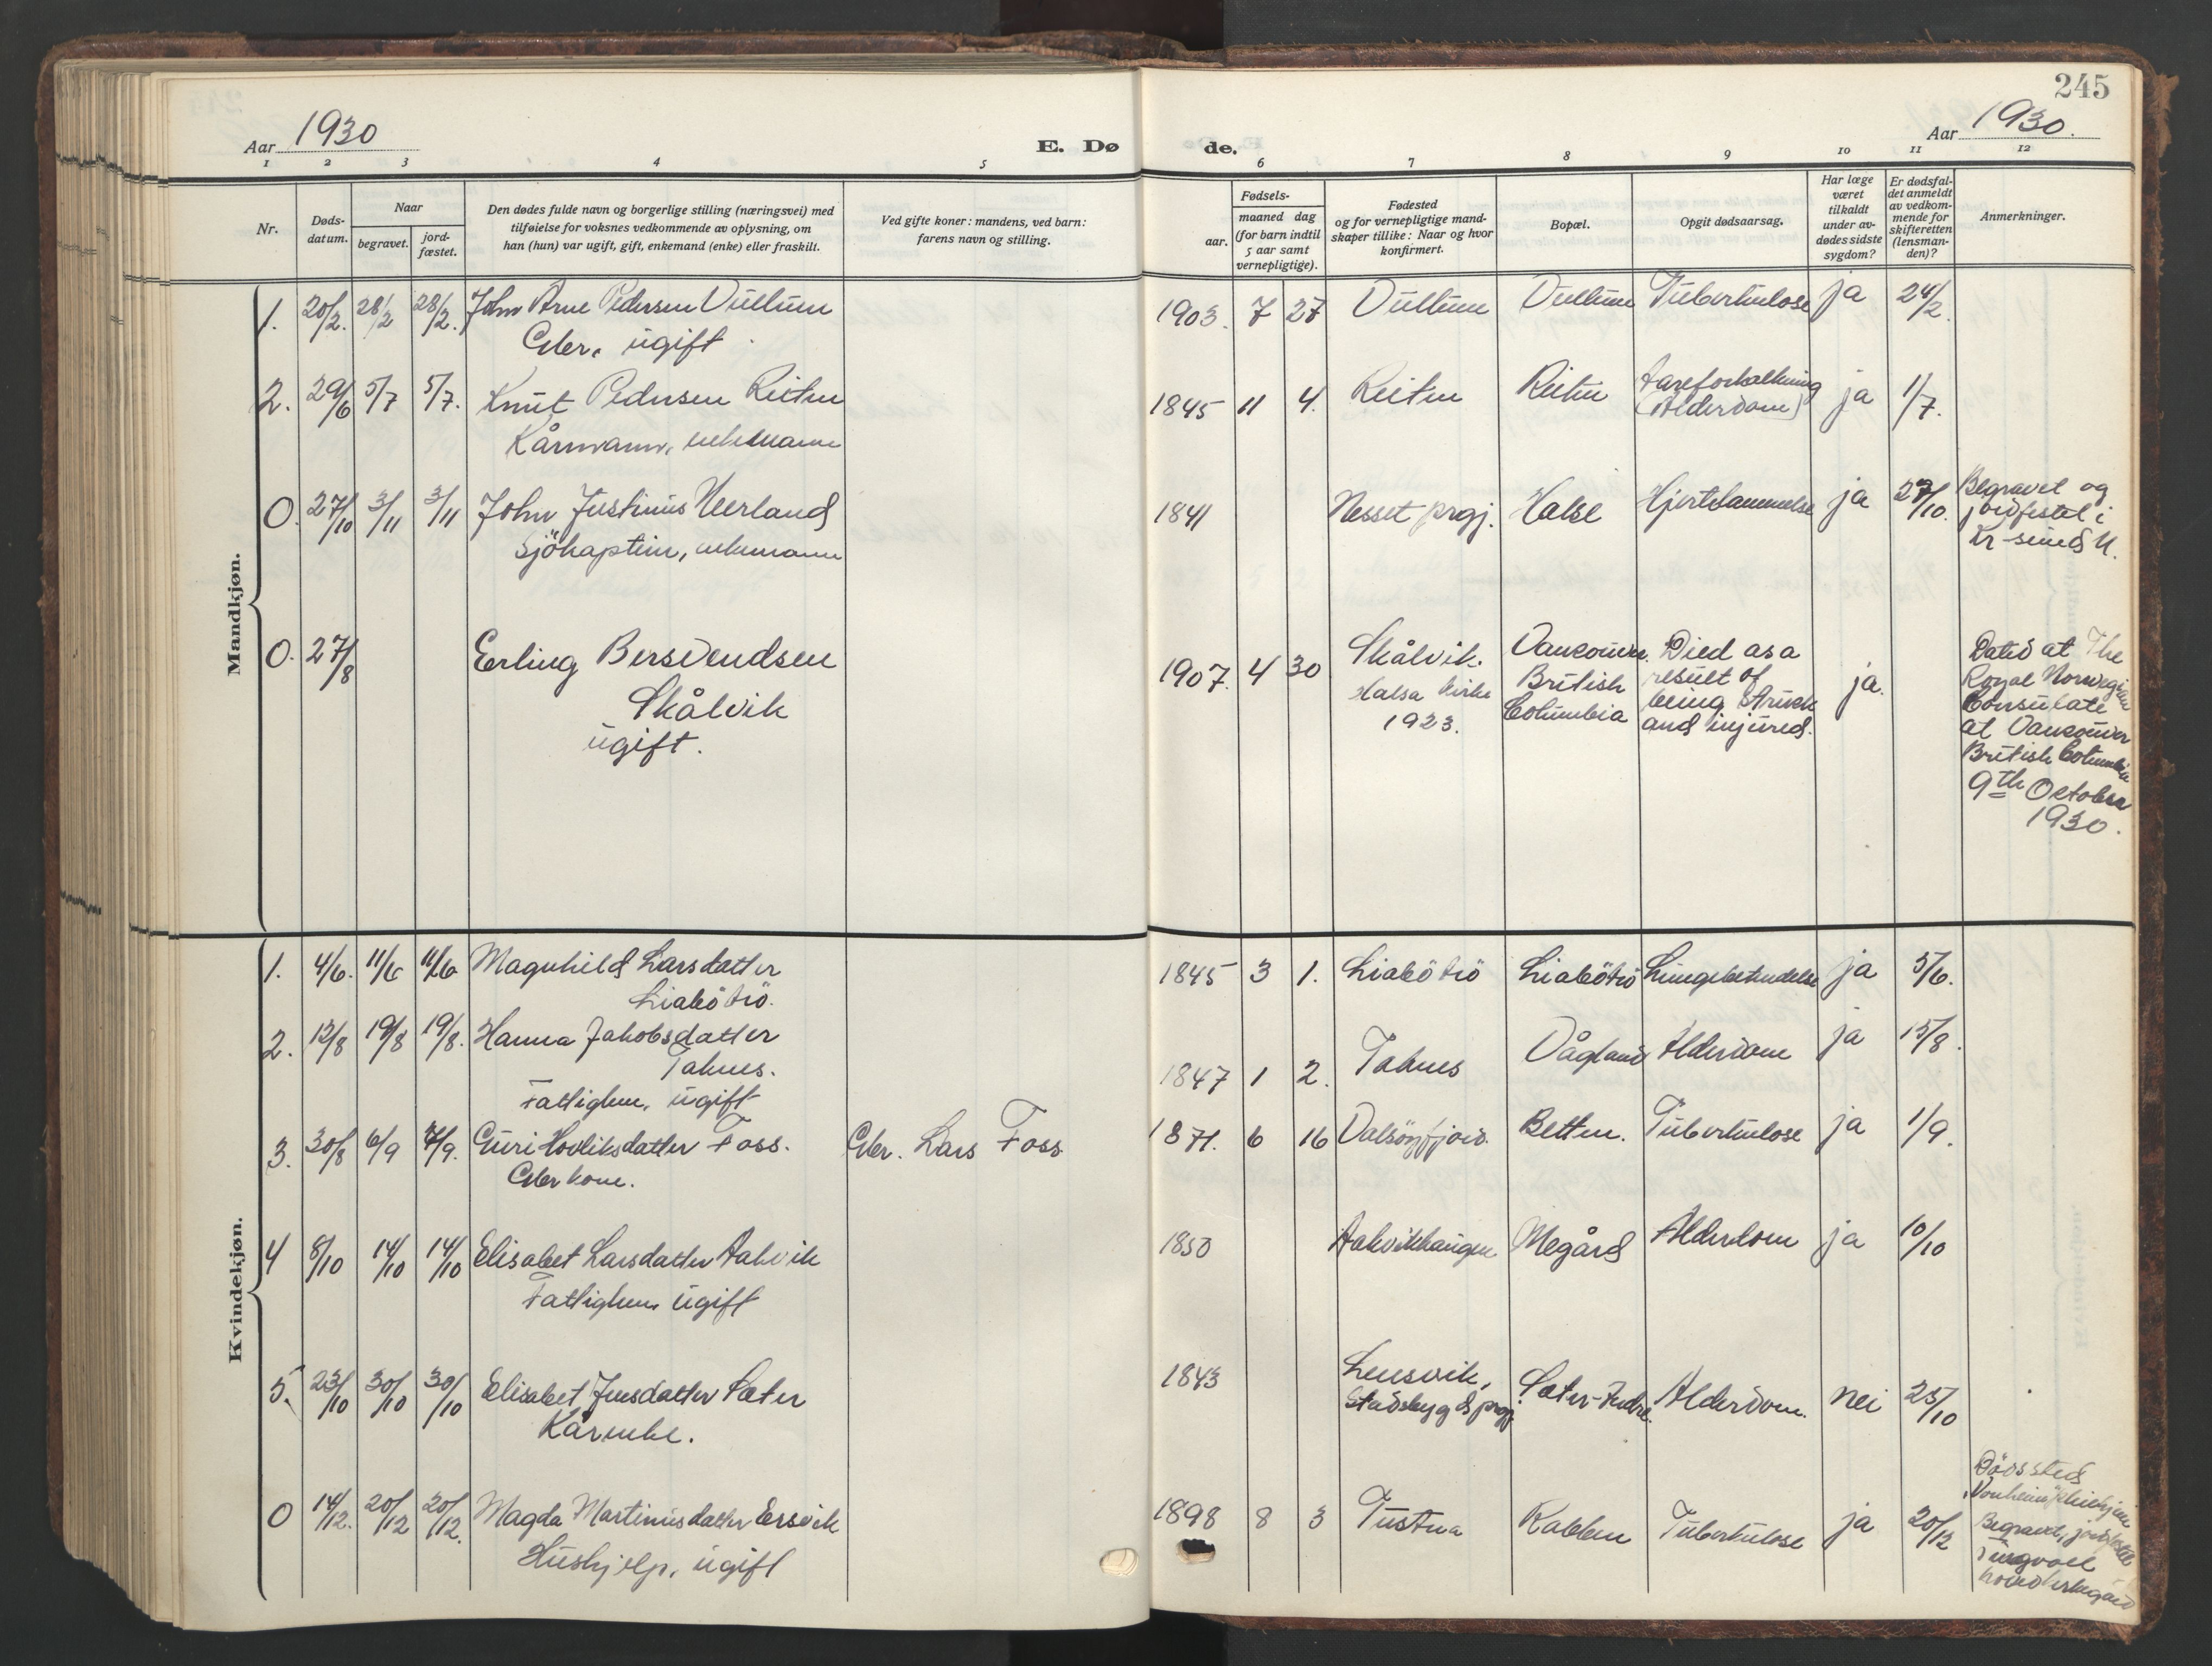 245
Aar 1930
E. Dø
de.
Aar 1930.
1 2 3 4 5 6 7 8 9 10 11 12
Nr.
Døds-
datum.
Naar
begravet.
jord-
fæstet.
Den dødes fulde navn og borgerlige stilling (næringsvei) med
tilføielse for voksnes vedkommende av oplysning, om
han (hun) var ugift, gift, enkemand (enke) eller fraskilt.
Ved gifte koner: mandens, ved barn:
farens navn og stilling.
Fødsels-
aar.
maaned dag
(for barn indtil
5 aar samt
vernepligtige).
Fødested
og for vernepligtige mand-
skaper tillike: Naar og hvor
konfirmert.
Bopæl.
Opgit dødsaarsag.
Har læge
været
tilkaldt
under av-
dødes sidste
sygdom?
Er dødsfal-
det anmeldt
av vedkom-
mende for
skifteretten
(lensman-
den)?
Anmerkninger.
Mandkjøn.
1. 20/2. 28/2 28/2. John Arne Pedersen Vullum
Gbr. ugift
1903. 7 27 Vullum Vullum Tuberkulose ja 24/2.
2. 29/6 5/7 5/7. Knut Pedersen Reiten
Kårmann, enkemann
1845 11 4. Reiten Reiten Aareforkalkning
(Alderdom) ja 1/7.
0. 27/10 3/11 3/11 John Justinus Neerland
Sjökaptein, enkemann
1841 Nesset prgj. Halse Hjertelammelse ja 27/10.
Begravet og
jordfestet i
Kr-sund N.
0. 27/8 Erling Bersvendsen
Skålvik
ugift.
1907. 4 30 Skålvik.
Halsa kirke
1923.
Vancouver.
British
Columbia
Died as a
result of
being struck
and injured.
ja.
Dated at The
Royal Norwegian
Consulate
at Vancouver
British Columbia
9th October
1930.
Kvindekjøn.
1. 4/6. 11/6 11/6 Magnhild Larsdatter
Liabötrö.
1845 3 1. Liabötrö Liabötrö Lungebetendelse ja 5/6.
2. 12/8 19/8 19/8. Hanna Jakobsdatter
Taknes.
Fattiglem, ugift
1847 1 2. Taknes Vågland Alderdom ja 15/8.
3. 30/8 6/9 7/9. Guri Hovliksdatter Foss.
Gbr kone.
Gbr. Lars Foss
1871. 6 16 Valsöyfjord. Betten. Tuberkulose ja 1/9.
4 8/10 14/10 14/10 Elisabet Larsdatter Aakvik
Fattiglem, ugift
1850 Aakvikhaugen Megård Alderdom ja 10/10
5. 23/10 30/10 30/10 Elisabet Jensdatter Sæter
Kårenke.
1843 Lensvik,
Stadsbygd prgj. Sæter-Indre. Alderdom. nei 25/10
0 14/12. 20/12 20/12. Magda Martinusdatter Ersvik
Hushjelp, ugift
1898 8 3 Tustna Rabben Tuberkulose ja 20/12
Dödssted
Begravet, jordfestet
Tingvoll
hovedkirkegård